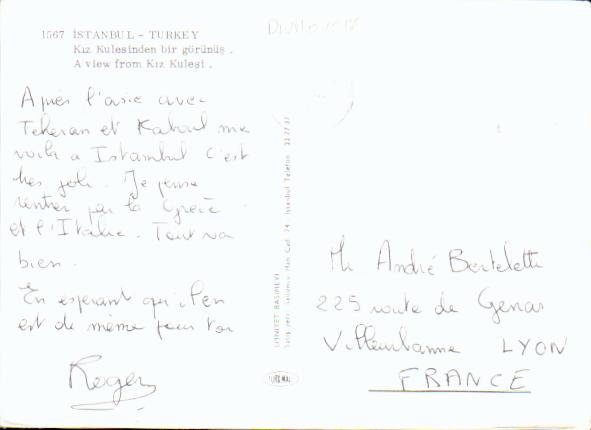 1567 İSTANBUL - TURKEY
Kız Kulesinden bir görünüş .
A view from Kız Kulesi .
Après l'asie avec
Teheran et Kaboul me
voila a Istambul c'est
très joli. Je pense
rentrer par la Grèce
et l'Italie. Tout va
bien.
En esperant qu'il en
est de même pour toi
Roger
HÜRRİYET BASIMEVİ
Satış yeri: Han Cad. 74 - İstanbul Telefon: 22 77 37
Mr André Berteletti
225 route de Genas
Villeurbanne LYON
FRANCE